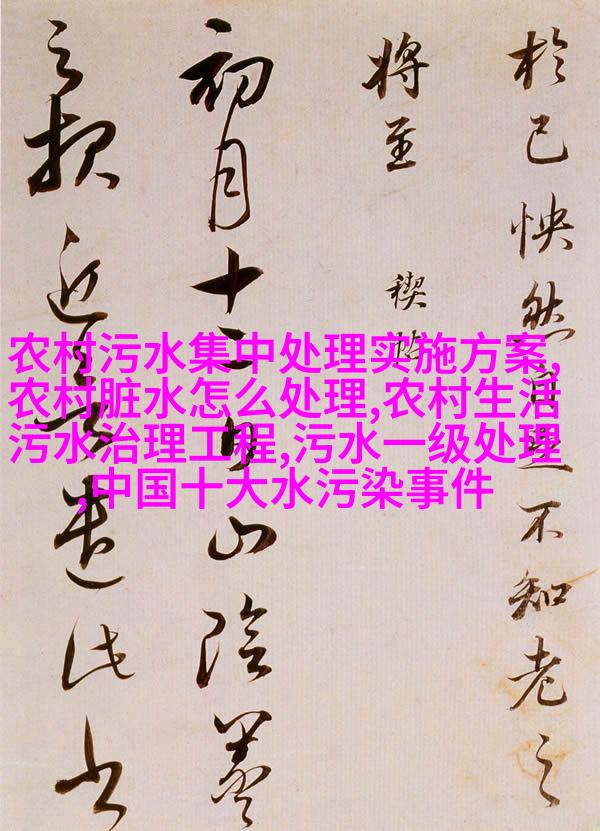 於己怏然不知老之
將至
禊帖
初月十二日山陰羲
之报近遣此书
农村污水集中处理实施方案,
农村脏水怎么处理,农村生活
污水治理工程,污水一级处理
,中国十大水污染事件